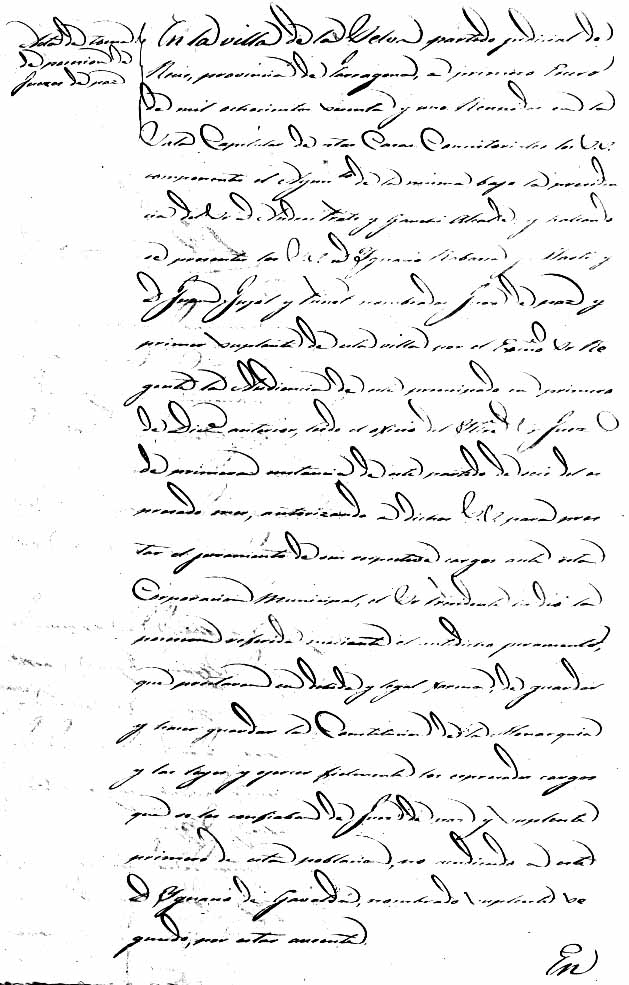 Acta de toma
de posesion de
Jueces de paz
En la villa de la Selva partido judicial de
Reus, provincia de Tarragona, a primero Enero
de mil ochocientos sesenta y uno Reunidos en la
Sala Capitular de estas Casas Consistoriales los SS
componentes el Ayunto de la misma bajo la presiden
cia del Sr D. y Alcalde y hallando
se presente los SS D Ygnacio y
D Juan Pujol y nombrados Juez de paz y
primer suplente de esta villa por el Exmo Sr Re
gente la Audiencia de este principado en primero
de Dice anterior, leido el oficio del Sr Juez
de primera instancia de este partido de seis del es
presado mes, autorizando a dichos SS para pres
tar el juramento de sus respectivos cargos ante esta
Corporacion Municipal, el Sr Presidente les dió la
posesion referida mediante el juramento,
que prestaron en debida y legal forma, de guardar
y hacer guardar la Constitucion de la Monarquia
y las leyes y ejercer fielmente los espresados cargos
que se les confiaban de Juez de paz y suplente
primero de esta poblacion, no a este
D Ygnacio de Gavaldá, nombrado suplente se
gundo, por estar ausente.
En